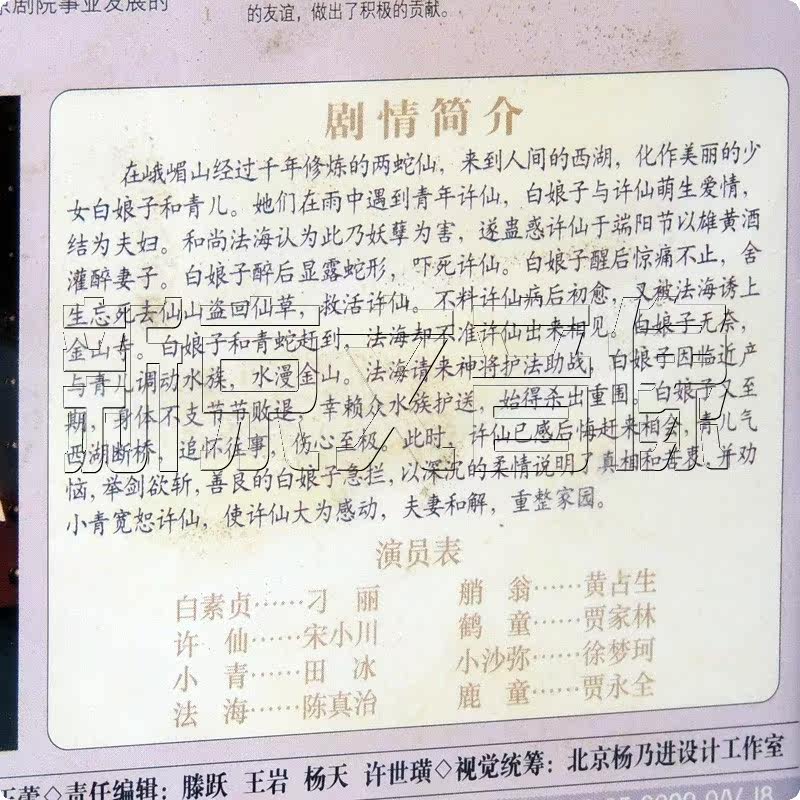 京剧院事业发展的
的友谊，做出了积极的贡献。
剧情简介
在峨嵋山经过千年修炼的两蛇仙，来到人间的西湖，化作美丽的少
女白娘子和青儿。她们在雨中遇到青年许仙，白娘子与许仙萌生爱情，
结为夫妇。和尚法海认为此乃妖孽为害，遂蛊惑许仙于端阳节以雄黄酒
灌醉妻子。白娘子醉后显露蛇形，吓死许仙。白娘子醒后惊痛不止，舍
生忘死去仙山盗回仙草，救活许仙。不料许仙病后初愈，又被法海诱上
金山寺。白娘子和青蛇赶到，法海却不准许仙出来相见。白娘子无奈，
与青儿调动水族，水漫金山。法海请来神将护法助战，白娘子因临近产
期，身体不支节节败退，幸赖众水族护送，始得杀出重围。白娘子又至
西湖断桥，追怀往事，伤心至极。此时，许仙已感后悔赶来相会，青儿气
恼，举剑欲斩，善良的白娘子急拦，以深沉的柔情说明了真相和苦衷，并劝
小青宽恕许仙，使许仙大为感动，夫妻和解，重整家园。
演员表
白素贞……刁 丽 艄 翁……黄占生
许 仙……宋小川 鹤 童……贾家林
小 青……田 冰 小沙弥……徐梦珂
法 海……陈真治 鹿 童……贾永全
◇责任编辑：滕跃 王岩 杨天 许世璜◇视觉统筹：北京杨乃进设计工作室